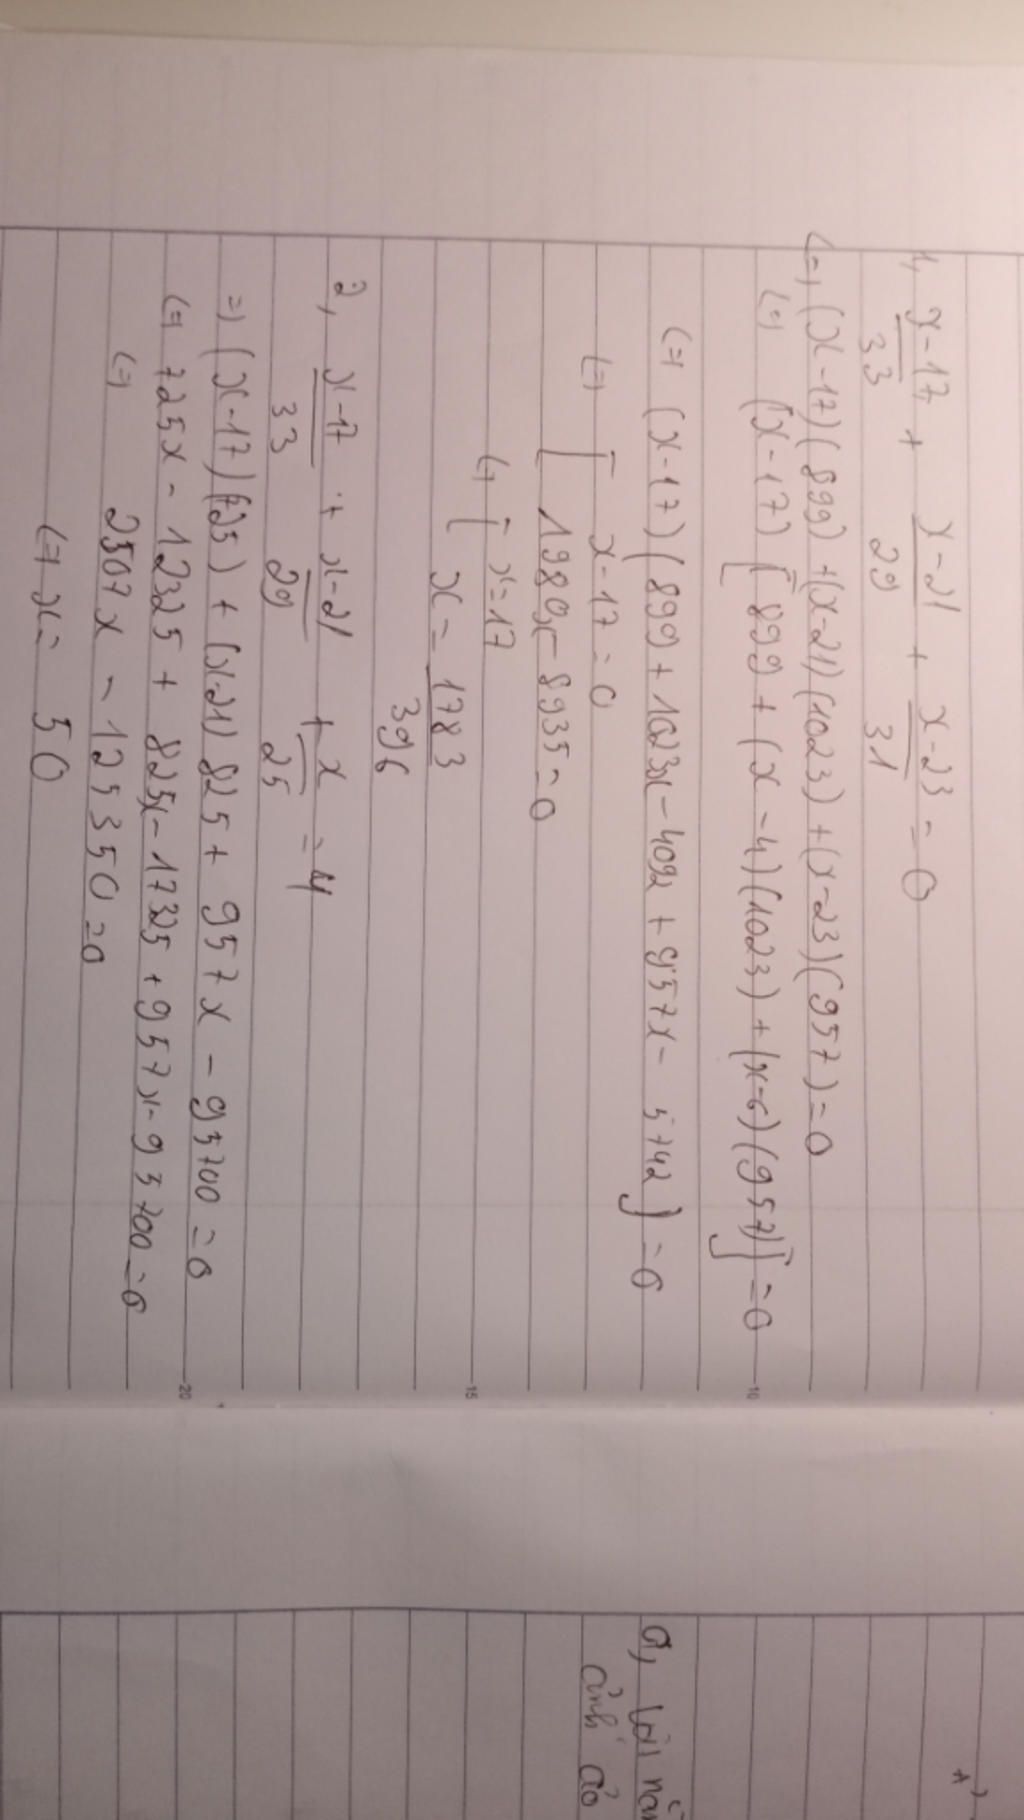 1, x-17/33 + x-21/29 + x-23/31 = 0
(=) (x-17)(899) + (x-21)(1023) + (x-23)(957) = 0
(=) (x-17) [899 + (x-4)(1023) + (x-6)(957)] = 0
(=) (x-17)(899 + 1023x - 4092 + 957x - 5742] = 0
(=) [ x-17 = 0
1980x - 8935 = 0
(=) [ x = 17
x = 1783/396
2, x-17/33 + x-21/29 + x/25 = 4
=) (x-17)(725) + (x-21)825 + 957x - 95700 = 0
(=) 725x - 12325 + 825x - 17325 + 957x - 95700 = 0
(=) 2507x - 125350 = 0
(=) x = 50
a, Lời
ảnh ảo
20
15
10